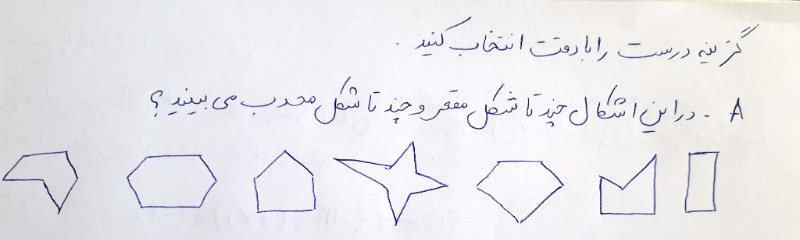 گزینه درست را با دقت انتخاب کنید .
A . در این اشکال چند تا شکل مقعر و چند تا شکل محدب می بینید ؟